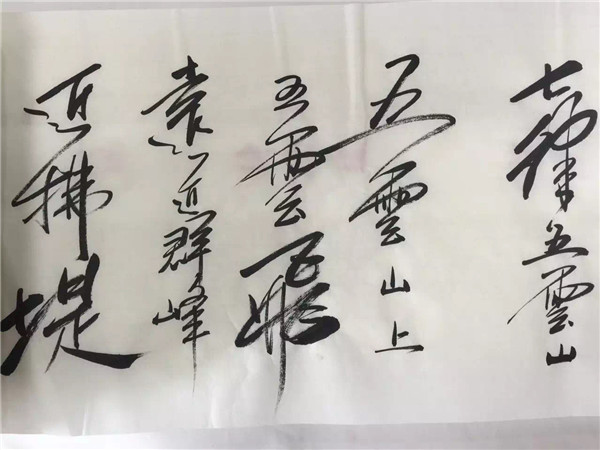 七律五雲山
五雲山上
五雲飛
遠近群峰
近拂堤